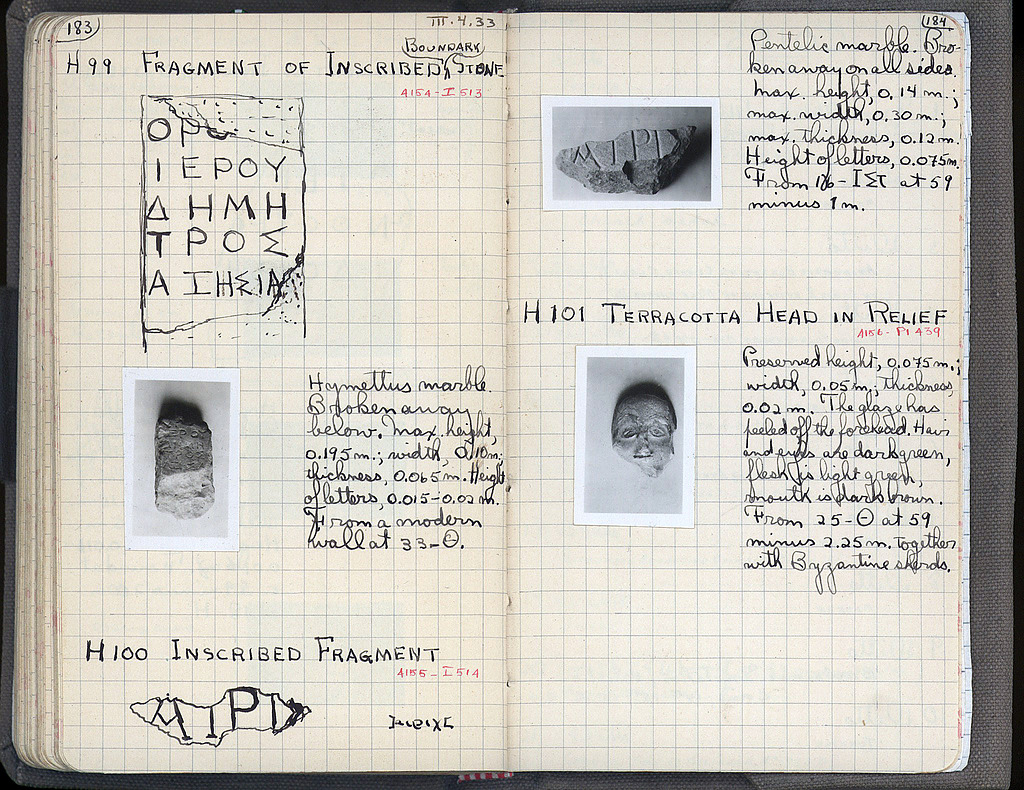 183
III.4.33
H 99 FRAGMENT OF INSCRIBED (BOUNDARY) STONE
A154-I 513
ΟΡ
ΙΕΡΟΥ
ΔΗΜΗ
ΤΡΟΣ
Hymettus marble.
Broken away
below. Max. height,
0.195 m.; width, 0.10 m;
thickness, 0.065 m. Height
of letters, 0.015-0.02 m.
From a modern
wall at 33-Θ.
H 100 INSCRIBED FRAGMENT
A155-I 514
ΙΡΙ
184
Pentelic marble. Bro-
ken away on all sides.
Max. height, 0.14 m.;
max. width, 0.30 m.;
max. thickness, 0.12 m.
Height of letters, 0.075 m.
From at 59
minus 1 m.
ΙΡΙ
H 101 TERRACOTTA HEAD IN RELIEF
A156-P1 439
Preserved height, 0.075 m.;
width, 0.05 m.; thickness,
0.02 m. The glaze has
peeled off the forehead. Hair
and eyes are dark green,
flesh is light green,
mouth is dark brown.
From 25-Θ at 59
minus 2.25 m. Together
with Byzantine sherds.